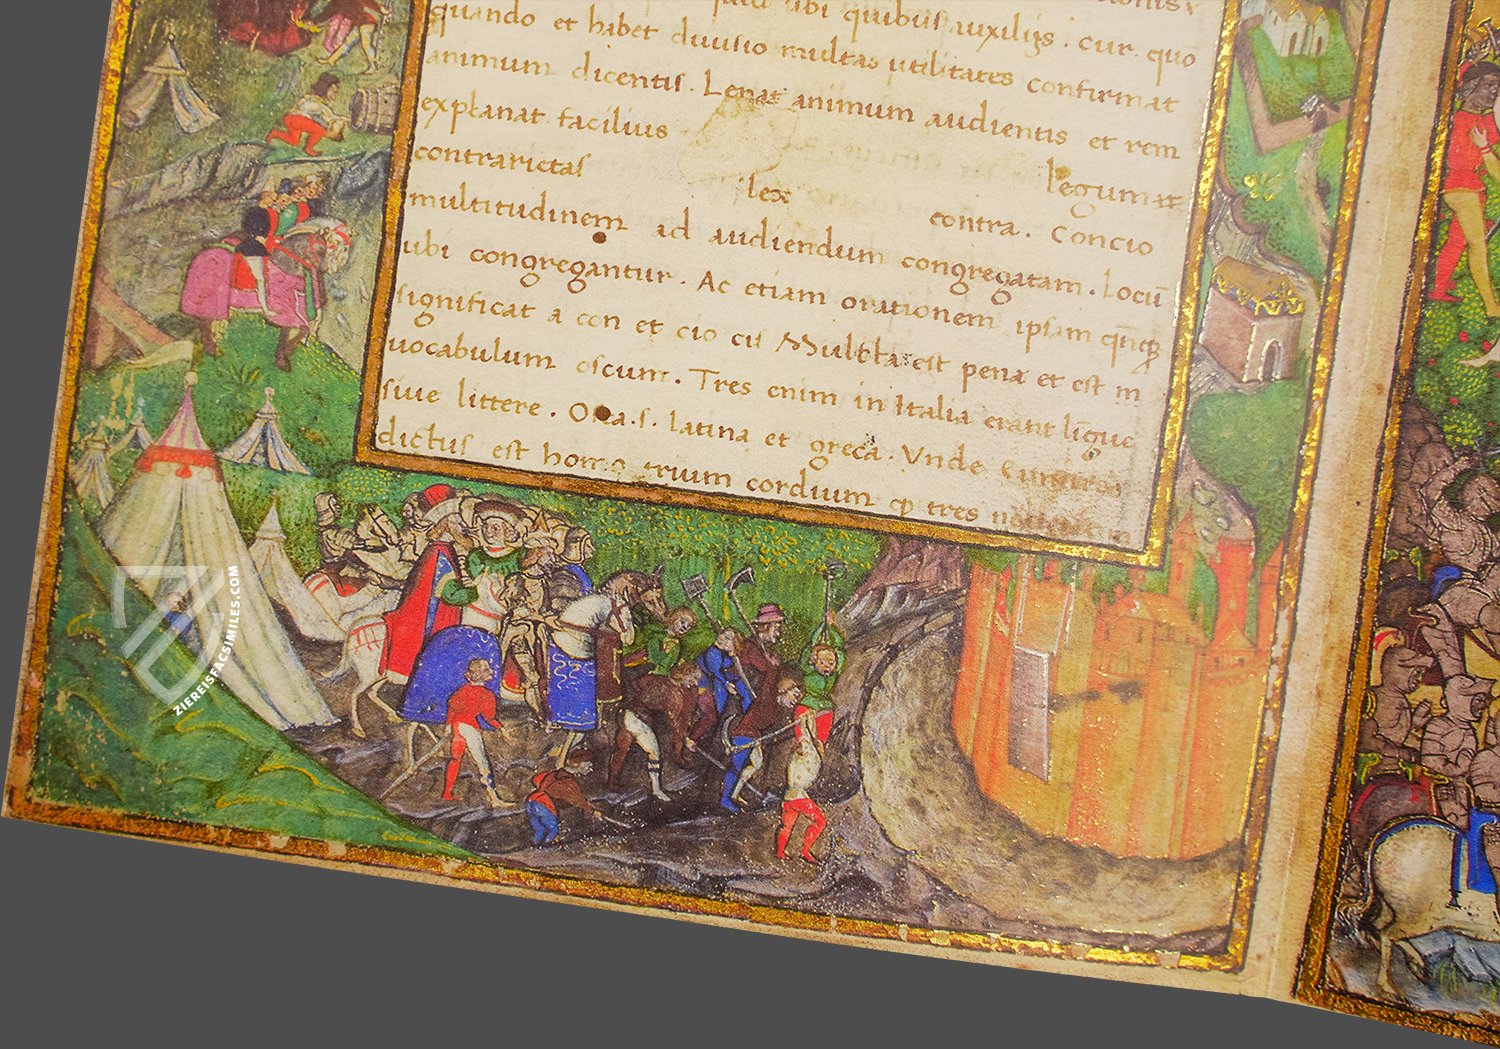 quid ibi quibus auxiliis . cur . quō
quando et habet diuisio multas utilitates confirmat
animum dicentis . Leuat animum audientis et rem
explanat facilius
contrarietas lex legum
contra . Concio
multitudinem ad audiendum congregatam . Locū
ubi congregantur . Ac etiam orationem ipsam
significat a con et cio cis est pena et est
uocabulum oscum . Tres enim in Italia erant līgue
siue littere . O a . s . latina et greca . Vnde
dictus est homo trium cordium tres
ZIEREISFACSIMILES.COM